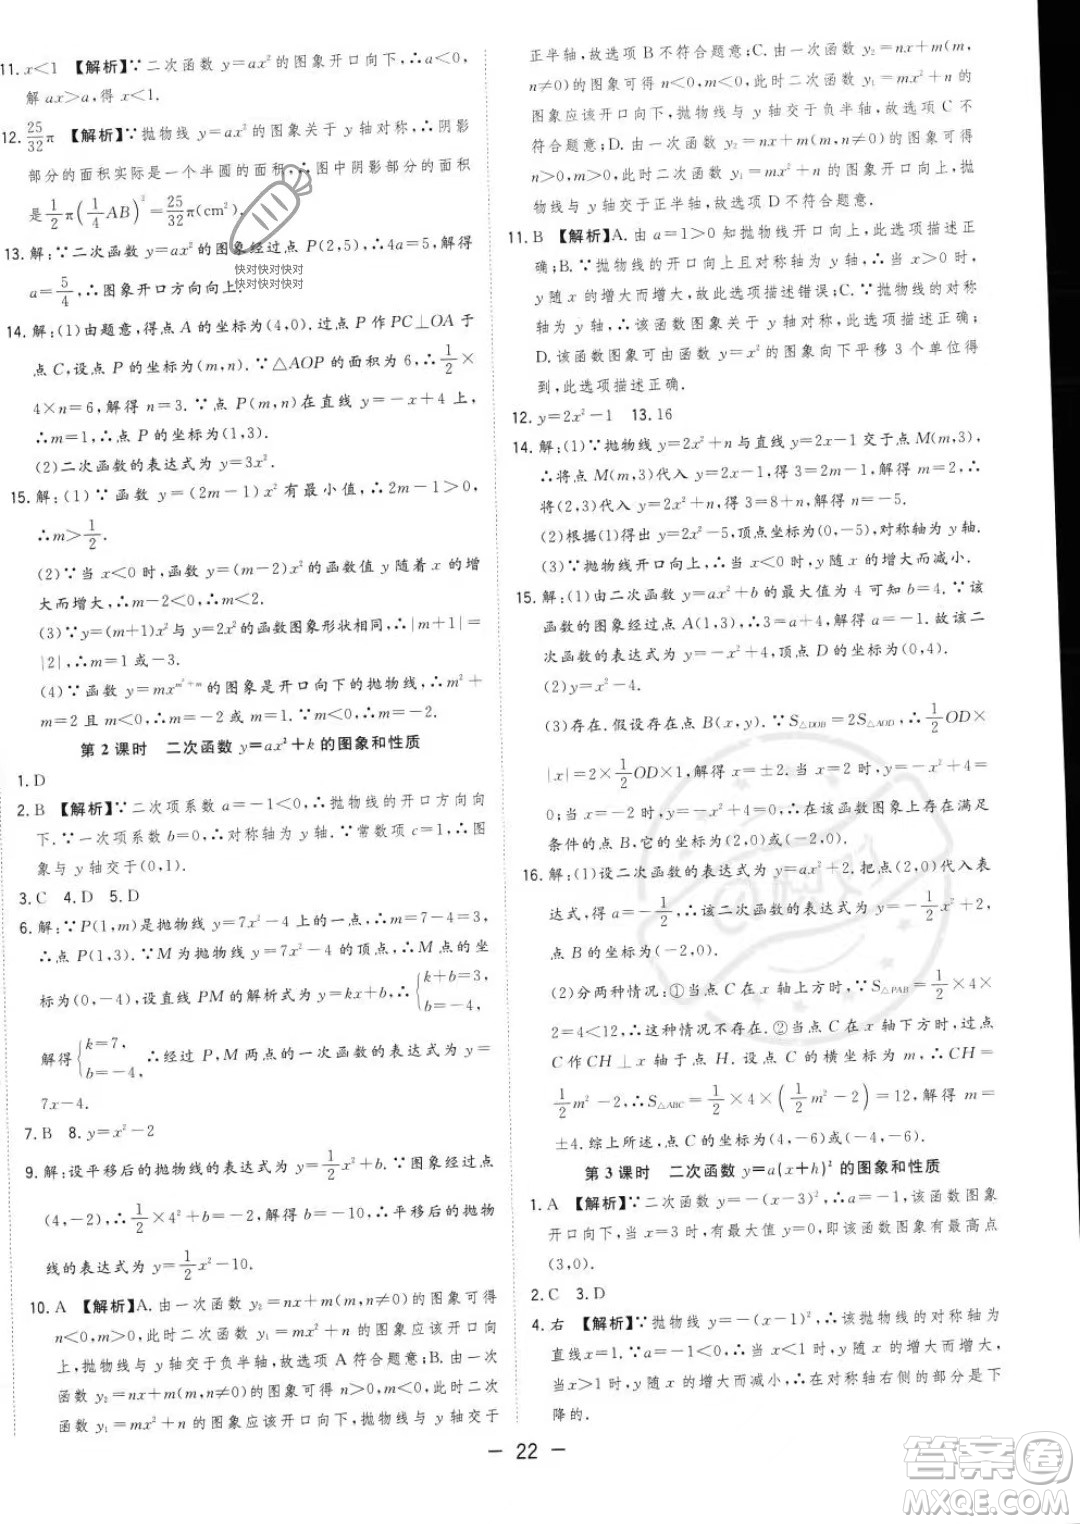 11. x＜1 【解析】∵二次函数 y=ax²的图象开口向下,∴a＜0,
解 ax＞a,得 x＜1.
12. 25/32 π 【解析】∵抛物线 y=ax²的图象关于 y 轴对称,∴阴影
部分的面积实际是一个半圆的面积,∴图中阴影部分的面积
是 1/2 π(1/4 AB)²=25/32 π(cm²).
13. 解:∵二次函数 y=ax²的图象经过点 P(2,5),∴4a=5,解得
a=5/4,∴图象开口方向向上.
快对快对快对
快对快对快对
14. 解:(1)由题意,得点 A 的坐标为(4,0).过点 P 作 PC⊥OA 于
点 C,设点 P 的坐标为(m,n).∵△AOP 的面积为 6,∴1/2×
4×n=6,解得 n=3.∵点 P(m,n)在直线 y=-x+4 上,
∴m=1,∴点 P 的坐标为(1,3).
(2)二次函数的表达式为 y=3x².
15. 解:(1)∵函数 y=(2m-1)x²有最小值,∴2m-1＞0,
∴m＞1/2.
(2)∵当 x＜0 时,函数 y=(m-2)x²的函数值 y 随着 x 的增
大而增大,∴m-2＜0,∴m＜2.
(3)∵y=(m+1)x²与 y=2x²的函数图象形状相同,∴|m+1|=
|2|,∴m=1 或-3.
(4)∵函数 y=mx^(m²+m)的图象是开口向下的抛物线,∴m²+
m=2 且 m＜0,∴m=-2.
第 2 课时 二次函数 y=ax²+k 的图象和性质
1. D
2. B 【解析】∵二次项系数 a=-1＜0,∴抛物线的开口方向向
下.∵一次项系数 b=0,∴对称轴为 y 轴.∵常数项 c=1,∴图
象与 y 轴交于(0,1).
3. C 4. D 5. D
6. 解:∵P(1,m)是抛物线 y=7x²-4 上的一点,∴m=7-4=3,
∴点 P(1,3).∵M 为抛物线 y=7x²-4 的顶点,∴M 点的坐
标为(0,-4),设直线 PM 的解析式为 y=kx+b,∴{k+b=3, b=-4,
解得{k=7, b=-4, ∴经过 P,M 两点的一次函数的表达式为 y=
7x-4.
7. B 8. y=x²-2
9. 解:设平移后的抛物线的表达式为 y=1/2x²+b.∵图象过点
(4,-2),∴1/2×4²+b=-2,解得 b=-10,∴平移后的抛物
线的表达式为 y=1/2x²-10.
10. A 【解析】A.由一次函数 y₂=nx+m(m,n≠0)的图象可得
n＜0,m＞0,此时二次函数 y₁=mx²+n 的图象应该开口向
上,抛物线与 y 轴交于负半轴,故选项 A 符合题意;B.由一次
函数 y₂=nx+m(m,n≠0)的图象可得 n＞0,m＜0,此时二次
函数 y₁=mx²+n 的图象应该开口向下,抛物线与 y 轴交于
正半轴,故选项 B 不符合题意;C.由一次函数 y₂=nx+m(m,
n≠0)的图象可得 n＜0,m＜0,此时二次函数 y₁=mx²+n 的
图象应该开口向下,抛物线与 y 轴交于负半轴,故选项 C 不
符合题意;D.由一次函数 y₂=nx+m(m,n≠0)的图象可得
n＞0,m＞0,此时二次函数 y₁=mx²+n 的图象开口向上,抛
物线与 y 轴交于正半轴,故选项 D 不符合题意.
11. B 【解析】A.由 a=1＞0 知抛物线开口向上,此选项描述正
确;B.∵抛物线的开口向上且对称轴为 y 轴,∴当 x＞0 时,
y 随 x 的增大而增大,故此选项描述错误;C.∵抛物线的对称
轴为 y 轴,∴该函数图象关于 y 轴对称,此选项描述正确;
D.该函数图象可由函数 y=x²的图象向下平移 3 个单位得
到,此选项描述正确.
12. y=2x²-1 13. 16
14. 解:(1)∵抛物线 y=2x²+n 与直线 y=2x-1 交于点 M(m,3),
∴将点 M(m,3)代入 y=2x-1,得 3=2m-1.解得 m=2.
将(2,3)代入 y=2x²+n,得 3=8+n,解得 n=-5.
(2)根据(1)得出 y=2x²-5,顶点坐标为(0,-5),对称轴为 y 轴.
(3)∵抛物线开口向上,∴当 x＜0 时,y 随 x 的增大而减小.
15. 解:(1)由二次函数 y=ax²+b 的最大值为 4 可知 b=4.∵该
函数的图象经过点 A(1,3),∴3=a+4,解得 a=-1.故该二
次函数的表达式为 y=-x²+4,顶点 D 的坐标为(0,4).
(2)y=x²-4.
(3)存在.假设存在点 B(x,y).∵S△DOB=2S△AOD,∴1/2OD×
|x|=2×1/2OD×1,解得 x=±2.当 x=±2 时,
y=-(±2)²+4=0,∴在该函数图象上存在满足
条件的点 B.它的坐标为(2,0)或(-2,0).
16. 解:(1)设二次函数的表达式为 y=ax²+2.把点(2,0)代入表
达式,得 a=-1/2,∴该二次函数的表达式为 y=-1/2x²+2,
点 B 的坐标为(-2,0).
(2)分两种情况:①当点 C 在 x 轴上方时,∵S△PAB=1/2×4×
2=4＜12,∴这种情况不存在.②当点 C 在 x 轴下方时,过点
C 作 CH⊥x 轴于点 H.设点 C 的横坐标为 m,∴CH=
1/2m²-2,∴S△ABC=1/2×4×(1/2m²-2)=12,解得 m=
±4.综上所述,点 C 的坐标为(4,-6)或(-4,-6).
第 3 课时 二次函数 y=a(x+h)²的图象和性质
1. A 【解析】∵二次函数 y=-(x-3)²,∴a=-1＜0,该函数图象
开口向下,当 x=3 时,有最大值 y=0,即该函数图象有最高点
(3,0).
2. C 3. D
4. 右 【解析】∵抛物线 y=-(x-1)²,∴该抛物线的对称轴为
直线x=1.∵a=-1＜0,∴当x＜1时,y 随 x 的增大而增大,
当 x＞1 时,y 随 x 的增大而减小,∴在对称轴右侧的部分是下
降的.
— 22 —
答案圈
MXQE.COM